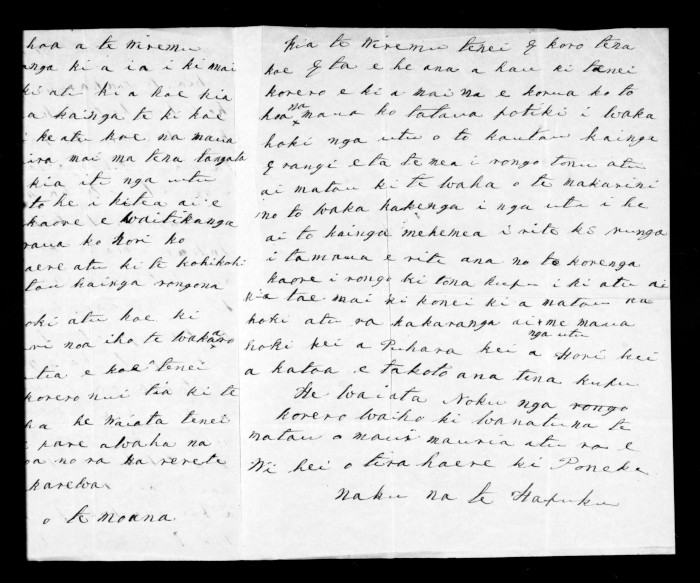 hoa a te Wiremu
anga ki a ia i ki mai
ki atu ki a koe kia
a kainga te ki koe
i ke atu koe na maua
ira mai ma tena tangata
kia iti nga utu
to he i kitea ai e
kaore e Waitikanga
raua ko Hori ko
aere atu ki te kohikohi
tou kainga rongona
oki atu koe ki
ri noa iho te wakaaro
utia e koe tenei
korero nui tia ki te
ha he Waiata tenei
i pare awaha na
oa no ra ka rerete
karewa
o te moana
Kia te Wiremu tenei E koro tena
koe E ta e he ana a hau ki tenei
korero e ki a mai na e korua ko to
hoa na maua ko tatava potiki i waka
hoki nga utu o to koutou kainga
E rangi e ta te mea i rongo tonu atu
ai matau ki te waha o te makarini
no to waka kakenga i nga utu i he
ai to kainga mehemea i rite ki runga
i tamaua e rite ana no te korenga
kaore i rongo ki tona kupu i ki atu ai
kia tae mai ki konei ki a matau na
hoki atu ra kakaranga ai me maua
nga utu
hoki kei a Puhara kei a Hori kei
a katoa e takoto ana tena kupu
He waiata Noku nga rongo
korero waiho ki wanatuna te
matau o maui mauria atu ra e
Wi hei o tira haere ki Poneke
Naku na te Hapuku